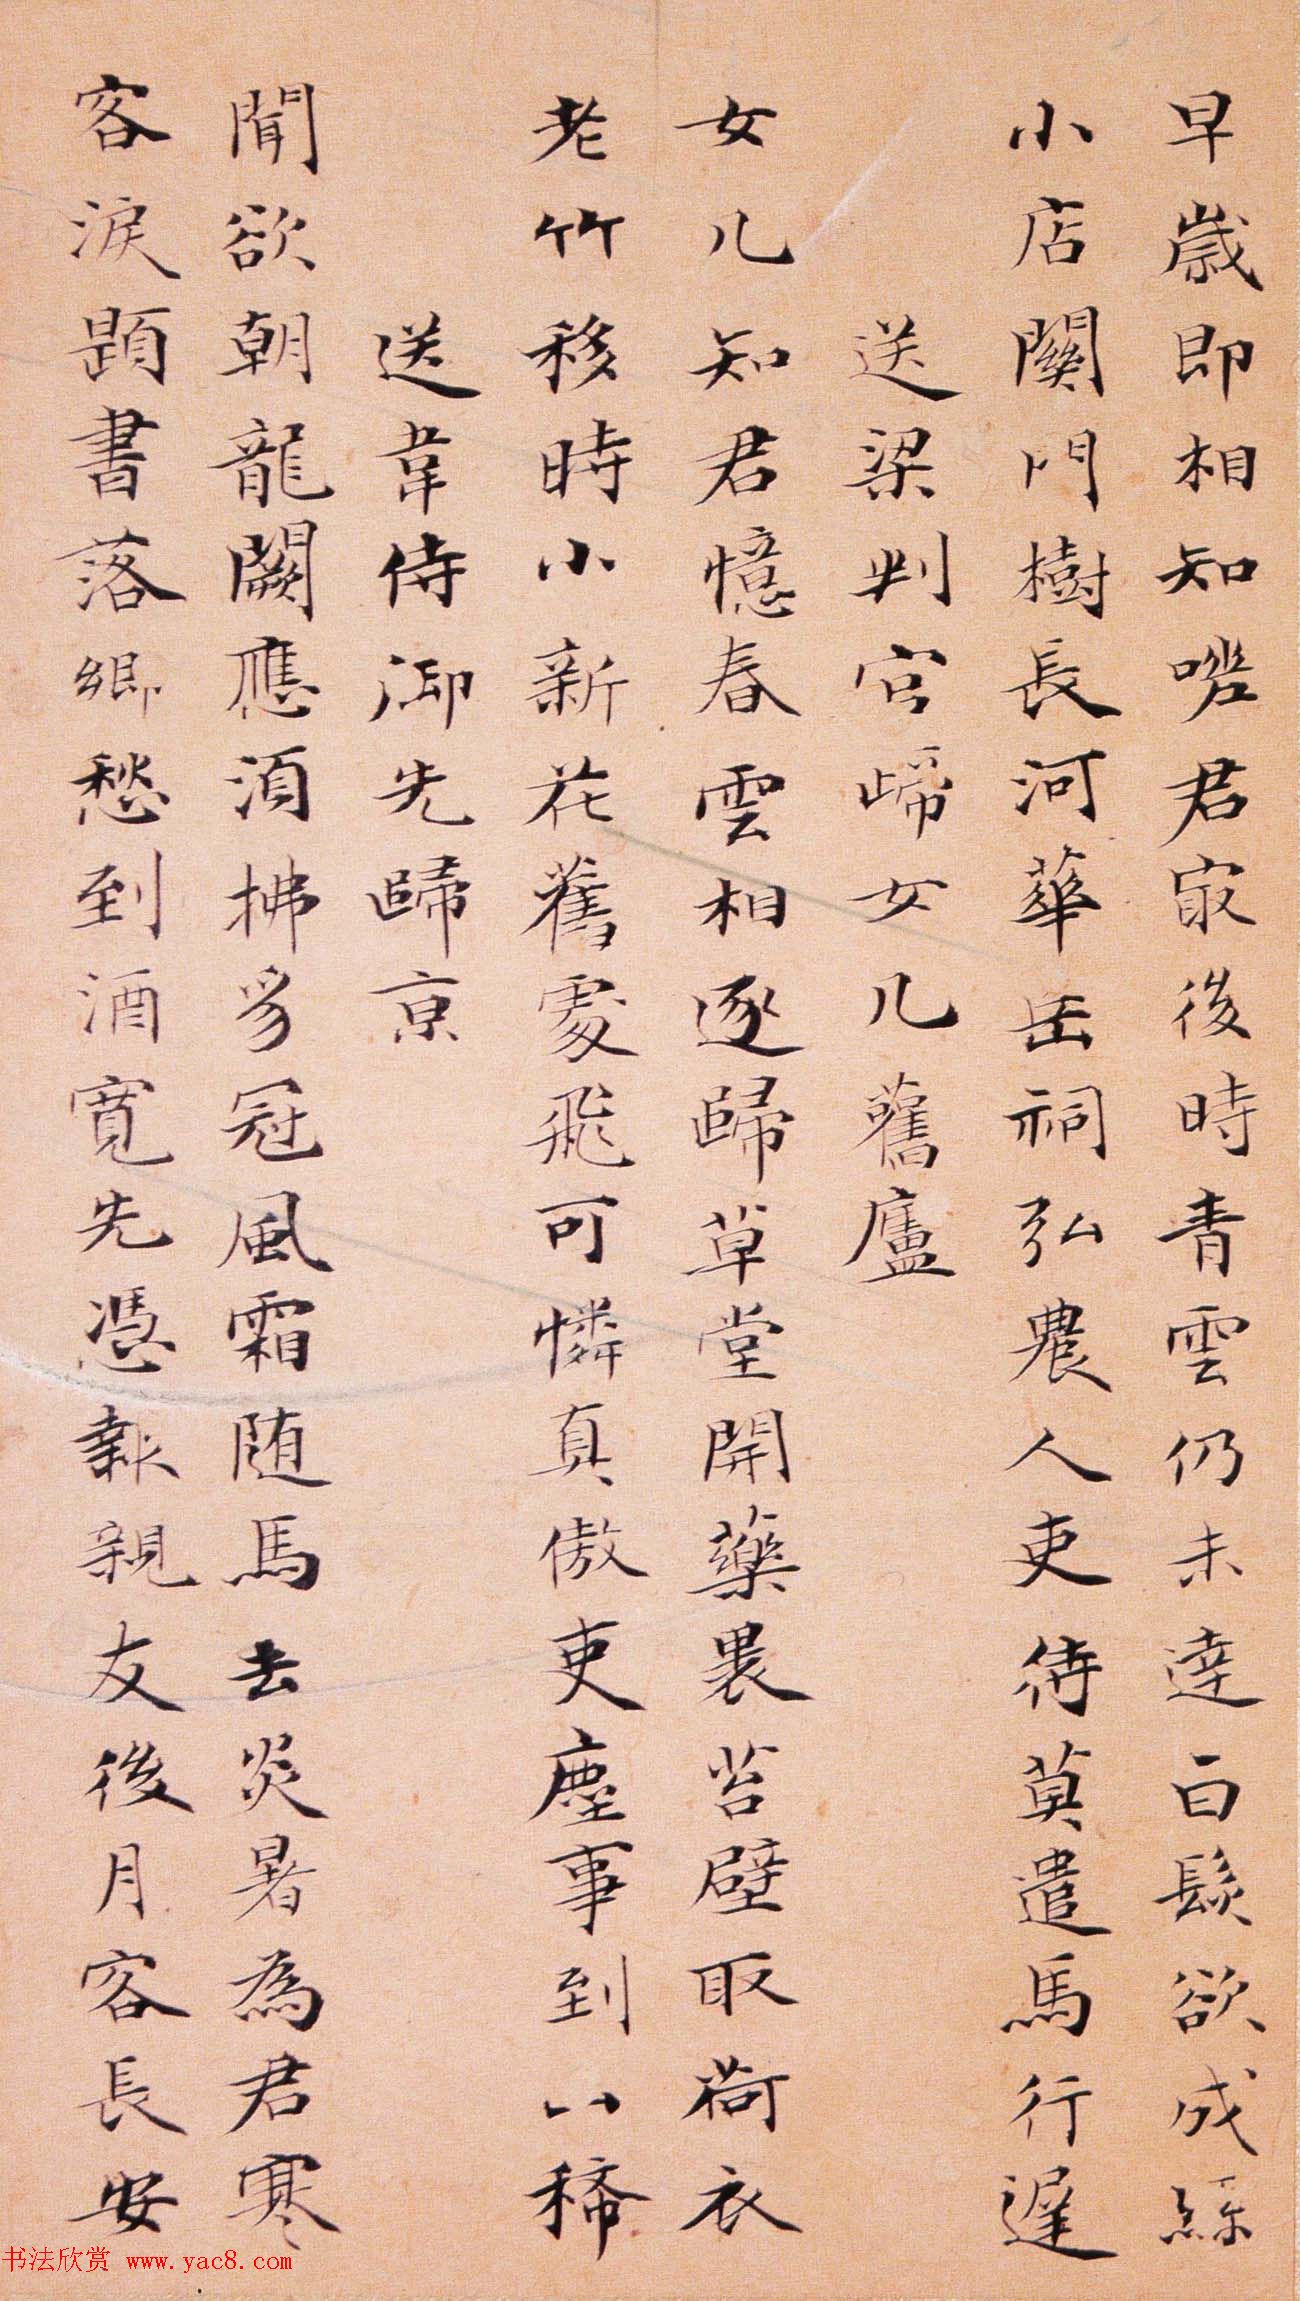 早歲即相知嗟君最後時青雲仍未達白髮欲成絲
小店關門樹長河華岳祠弘農人吏待莫遣馬行遲
送梁判官歸女几舊廬
女几知君憶春雲相逐歸草堂開藥裹苔壁取荷衣
老竹移時小新花舊處飛可憐真傲吏塵事到山稀
送韋侍御先歸京
聞欲朝龍闕應須拂豸冠風霜随馬去炎暑為君寒
客淚題書落鄉愁到酒寬先憑報親友後月客長安
书法欣赏 www.yac8.com